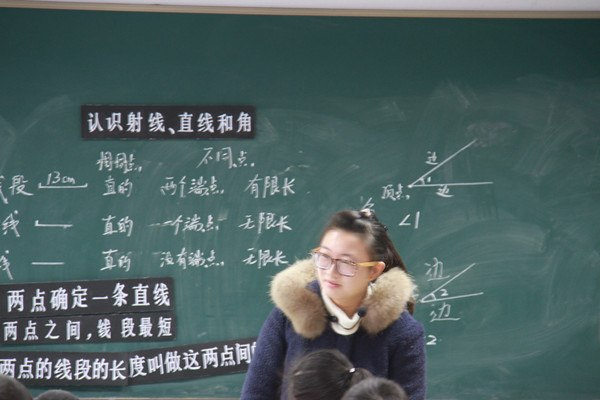 认识射线、直线和角
相同点。 不同点。
线段 13cm 直的 两个端点。 有限长
线 直的 一个端点。 无限长
线 直的 没有端点。 无限长
边
顶点 1 边
∠1
边
2
边
2
两点确定一条直线
两点之间,线段最短
两点的线段的长度叫做这两点间